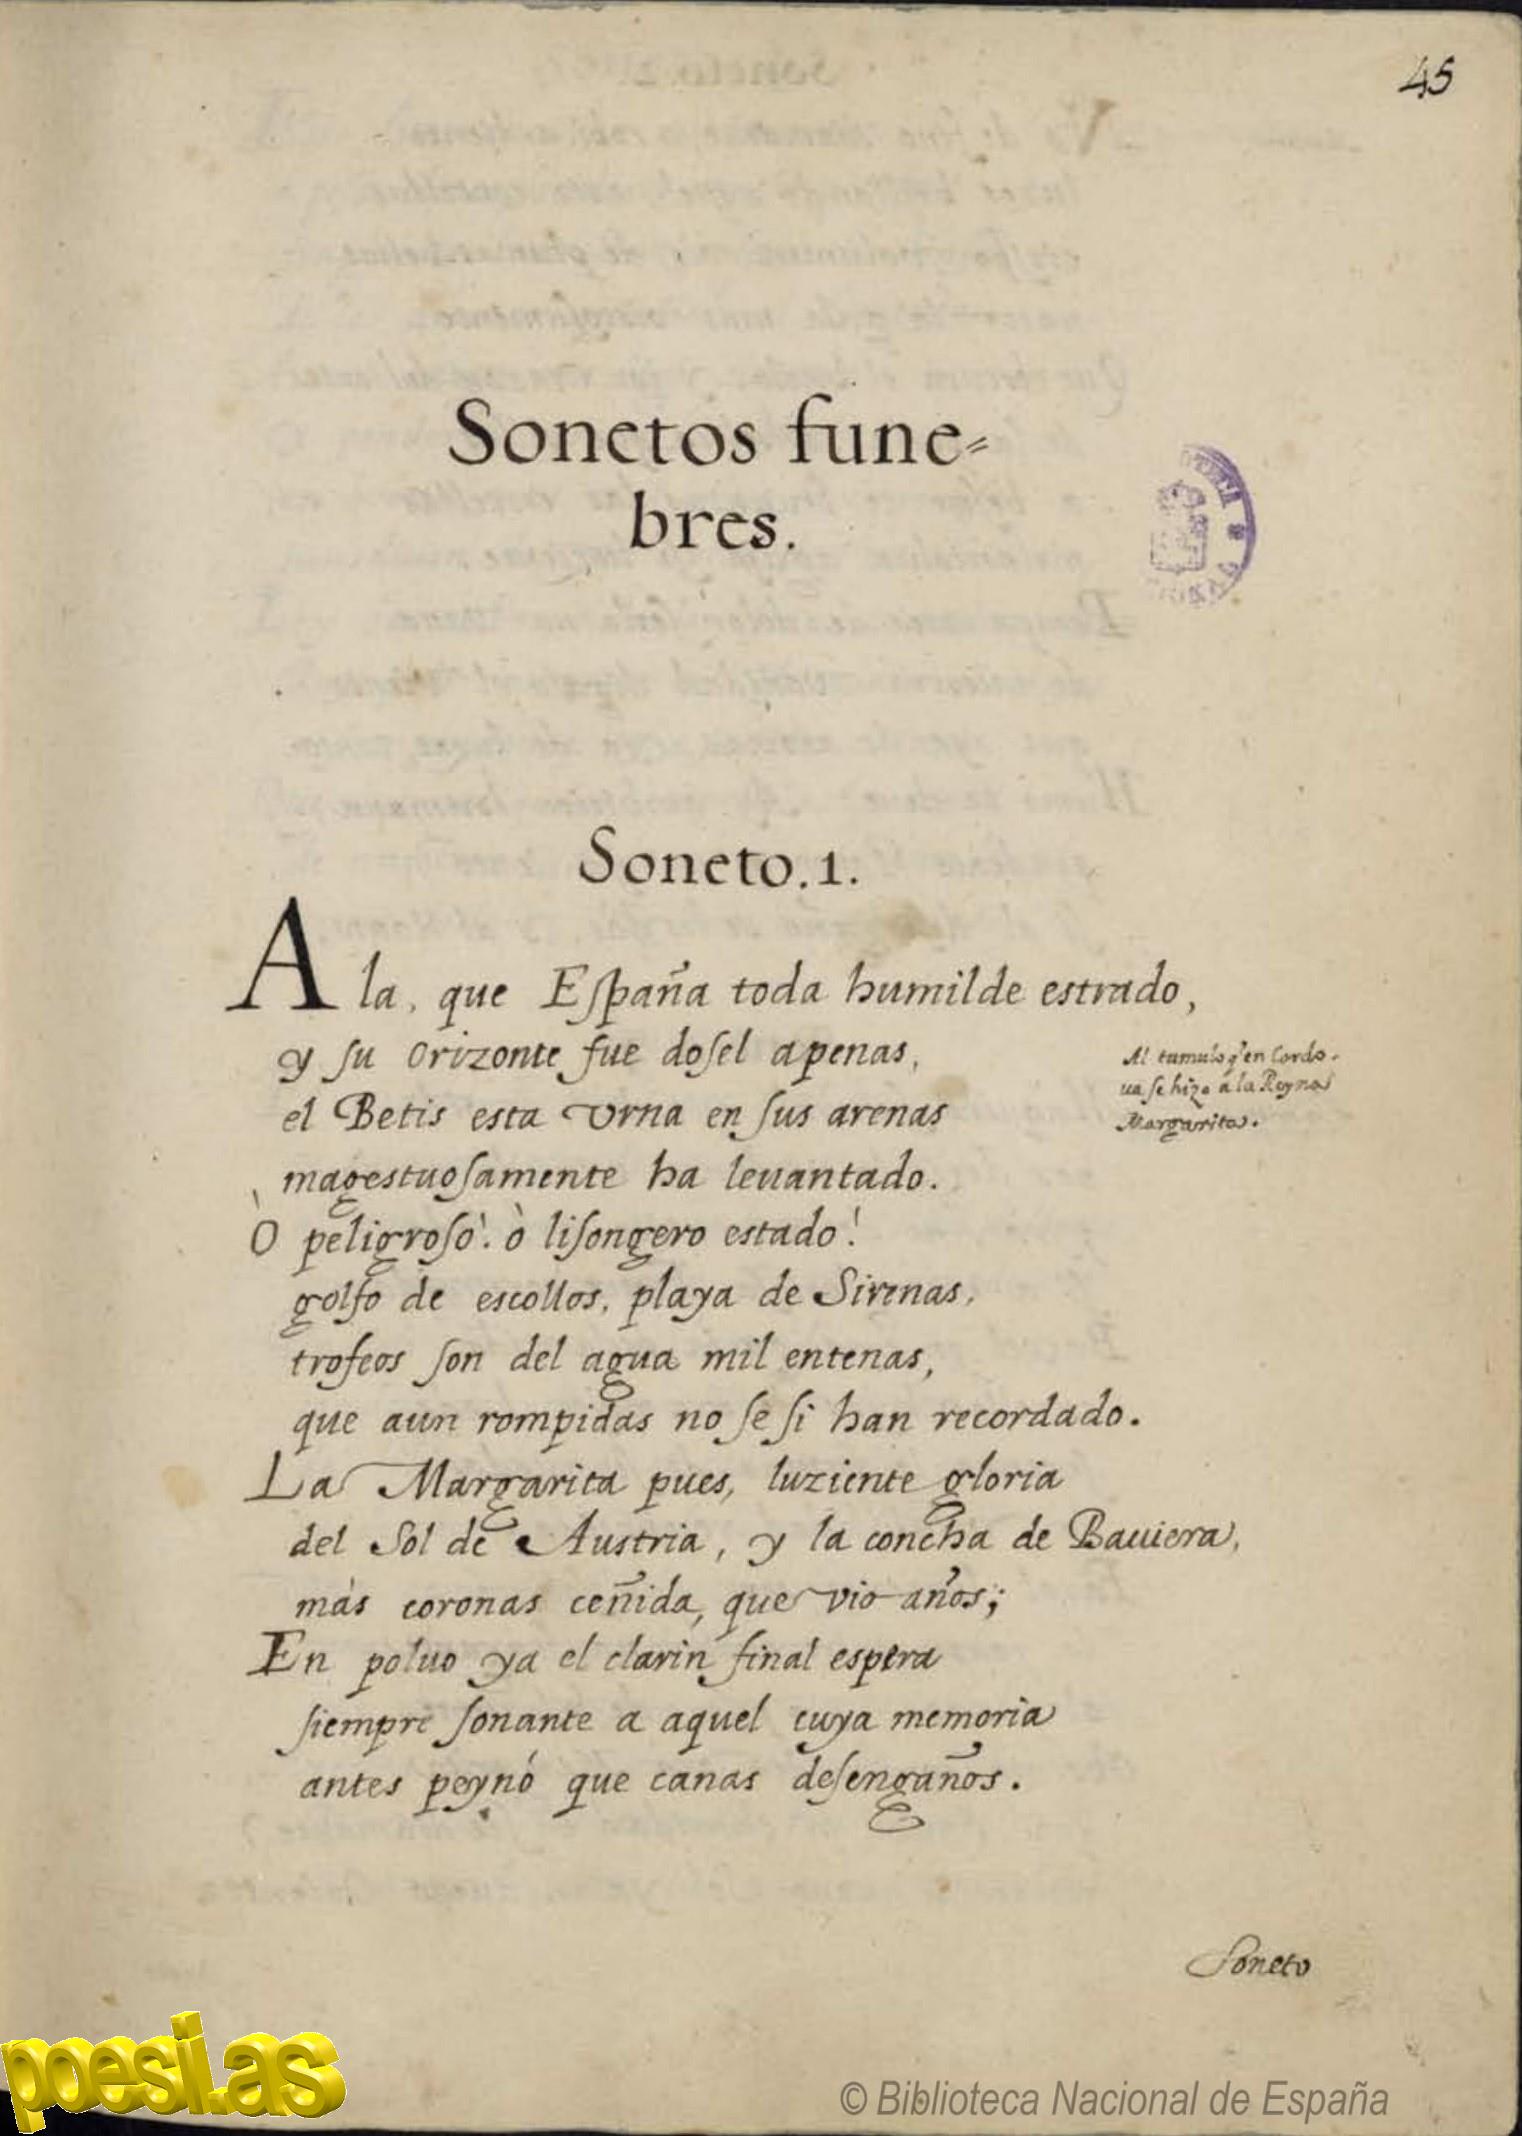 45
Sonetos fune=
bres.
Soneto.1.
A la, que España toda humilde estrado,
y su Orizonte fue dosel apenas,
el Betis esta Vrna en sus arenas
magestuosamente ha leuantado.
Ò peligroso! ò lisongero estado!
golfo de escollos, playa de Sirenas,
trofeos son del agua mil entenas,
que aun rompidas no se si han recordado.
La Margarita pues, luziente gloria
del Sol de Austria, y la concha de Bauiera,
màs coronas ceñida, que vio años;
En poluo ya el clarin final espera
siempre sonante a aquel cuya memoria
antes peynó que canas desengaños.
Al tumulo q' en Cordo-
ua se hizo a la Reyna
Margarita.
Soneto
poesi.as
© Biblioteca Nacional de España